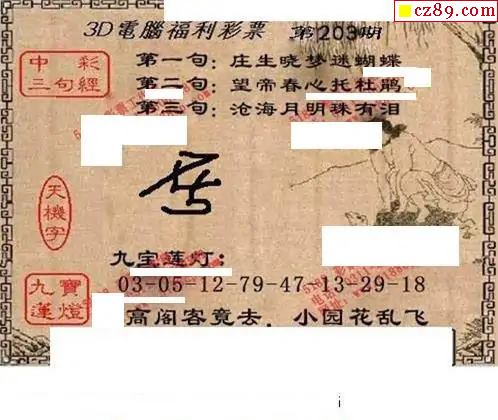 cz89.com
3D電腦福利彩票 第203期
中彩
三句經
第一句：庄生晓梦迷蝴蝶
第二句：望帝春心托杜鹃
第三句：沧海月明珠有泪
天機字
九宝莲灯：
03-05-12-79-47 13-29-18
九寶
蓮燈
高阁客竟去，小园花乱飞
i